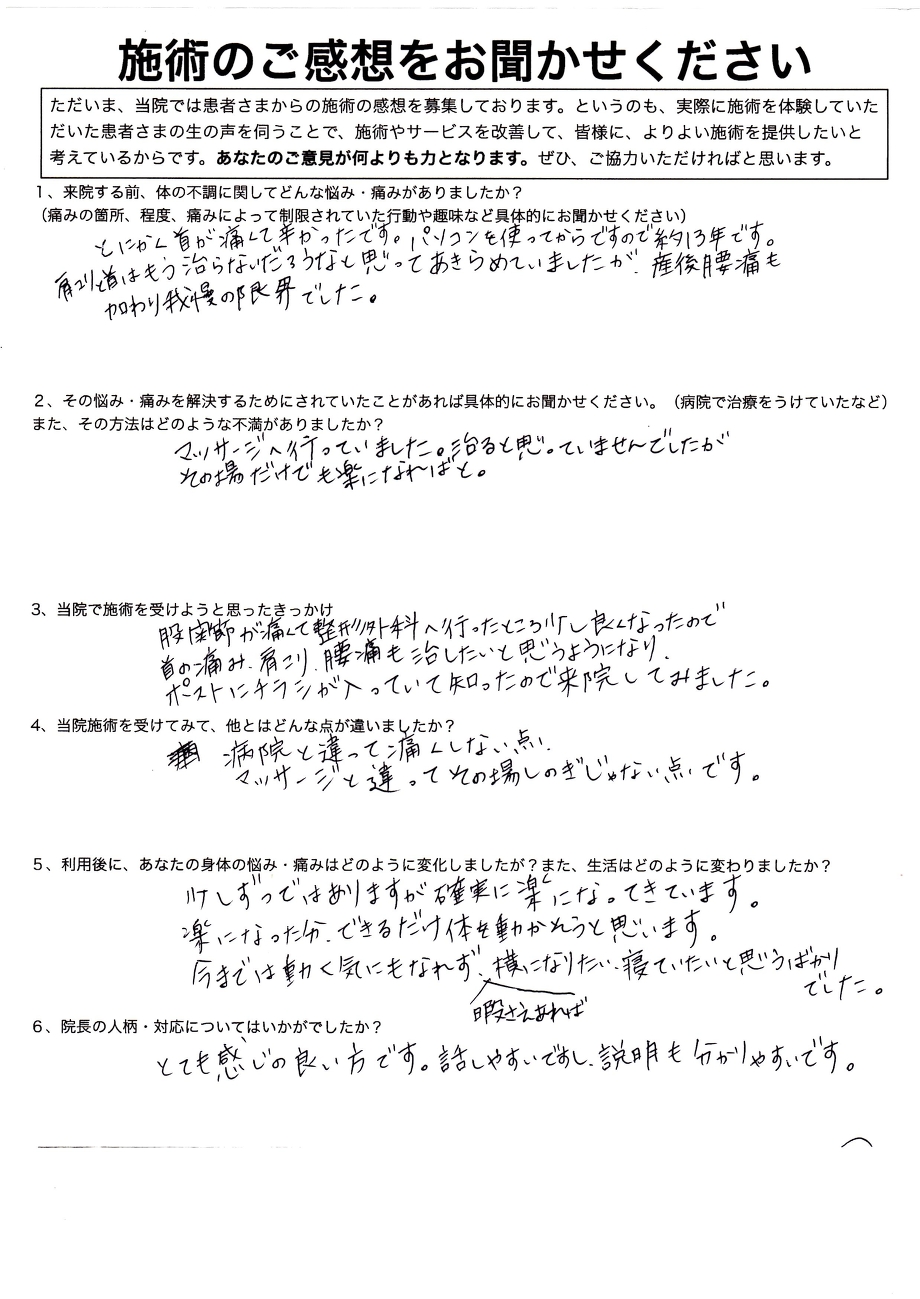 施術のご感想をお聞かせください
ただいま、当院では患者さまからの施術の感想を募集しております。というのも、実際に施術を体験していた
だいた患者さまの生の声を伺うことで、施術やサービスを改善して、皆様に、よりよい施術を提供したいと
考えているからです。あなたのご意見が何よりも力となります。ぜひ、ご協力いただければと思います。
1、来院する前、体の不調に関してどんな悩み・痛みがありましたか？
（痛みの箇所、程度、痛みによって制限されていた行動や趣味など具体的にお聞かせください）
とにかく首が痛くて辛かったです。パソコンを使ってからですので約13年です。
肩コリと首はもう治らないだろうなと思ってあきらめていましたが、産後腰痛も
加わり我慢の限界でした。
2、その悩み・痛みを解決するためにされていたことがあれば具体的にお聞かせください。（病院で治療をうけていたなど）
また、その方法はどのような不満がありましたか？
マッサージへ行っていました。治ると思っていませんでしたが
その場だけでも楽になればと。
3、当院で施術を受けようと思ったきっかけ
股関節が痛くて整形外科へ行ったところ少し良くなったので
首の痛み、肩こり、腰痛も治したいと思うようになり、
ポストにチラシが入っていて知ったので来院してみました。
4、当院施術を受けてみて、他とはどんな点が違いましたか？
病院と違って痛くしない点、
マッサージと違ってその場しのぎじゃない点です。
5、利用後に、あなたの身体の悩み・痛みはどのように変化しましたが？また、生活はどのように変わりましたか？
少しずつではありますが確実に楽になってきています。
楽になった分、できるだけ体を動かそうと思います。
今までは動く気にもなれず、横になりたい、寝ていたいと思うばかり
でした。
暇さえあれば
6、院長の人柄・対応についてはいかがでしたか？
とても感じの良い方です。話しやすいですし、説明も分かりやすいです。